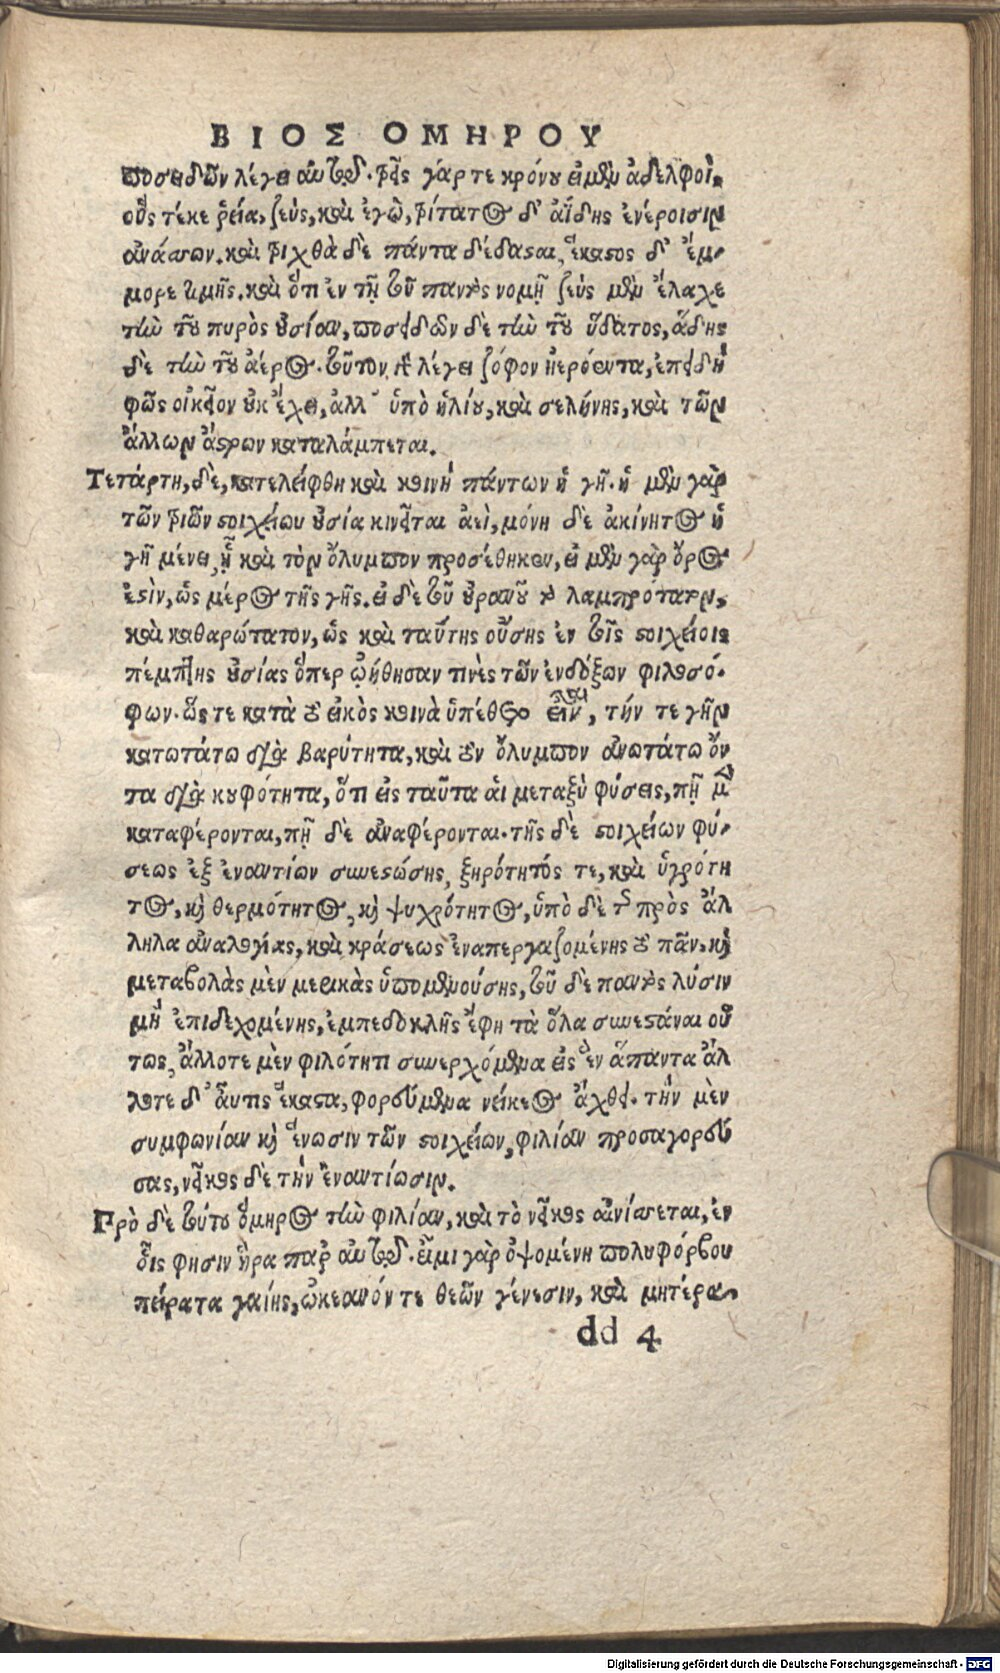 ΒΙΟΣ ΟΜΗΡΟΥ
ποσειδῶν λέγει αὐτῷ. τρεῖς γάρ τε κρόνου εἰμὲν ἀδελφοί,
οὓς τέκε ῥεία, ζεὺς, καὶ ἐγὼ, τρίτατος δ' ἀΐδης ἐνέροισιν
ἀνάσσων. καὶ τριχθὰ δὲ πάντα δέδασαι, ἕκαστος δ' ἔμ-
μορε τιμῆς. καὶ ὅτι ἐν τῇ τοῦ παντὸς νομῇ ζεὺς μὲν ἔλαχε
τὴν τοῦ πυρὸς οὐσίαν, ποσειδῶν δὲ τὴν τοῦ ὕδατος, ἅδης
δὲ τὴν τοῦ ἀέρος. τοῦτον καὶ λέγει ζόφον ἠερόεντα, ἐπειδὴ
φῶς οἰκεῖον οὐκ ἔχει, ἀλλ' ὑπὸ ἡλίου, καὶ σελήνης, καὶ τῶν
ἄλλων ἄστρων καταλάμπεται.
Τετάρτη, δὲ, κατελείφθη καὶ κοινὴ πάντων ἡ γῆ. ἡ μὲν γὰρ
τῶν τριῶν στοιχείων οὐσία κινεῖται ἀεὶ, μόνη δὲ ἀκίνητος ἡ
γῆ μένει, ᾗ καὶ τὸν ὄλυμπον προσέθηκεν, εἰ μὲν γὰρ ὄρος
ἐστὶν, ὡς μέρος τῆς γῆς. εἰ δὲ τοῦ οὐρανοῦ τὸ λαμπρότατον,
καὶ καθαρώτατον, ὡς καὶ ταύτης οὔσης ἐν τοῖς στοιχείοις
πέμπτης οὐσίας ὅπερ ᾠήθησαν τινὲς τῶν ἐνδόξων φιλοσό-
φων. ὥστε κατὰ τὸ εἰκὸς κοινὰ ὑπέθετο εἶναι, τήν τε γῆν
κατωτάτω διὰ βαρύτητα, καὶ τὸν ὄλυμπον ἀνωτάτω ὄν
τα διὰ κουφότητα, ὅτι εἰς ταῦτα αἱ μεταξὺ φύσεις, πῇ μὲν
καταφέρονται, πῇ δὲ ἀναφέρονται. τῆς δὲ στοιχείων φύ-
σεως ἐξ ἐναντίων συνεστώσης, ξηρότητός τε, καὶ ὑγρότη
τος, καὶ θερμότητος, καὶ ψυχρότητος, ὑπὸ δὲ τῆς πρὸς ἄλ
ληλα ἀναλογίας, καὶ κράσεως ἐναπεργαζομένης τὸ πᾶν, καὶ
μεταβολὰς μὲν μερικὰς ὑπομενούσης, τοῦ δὲ παντὸς λύσιν
μὴ ἐπιδεχομένης, ἐμπεδοκλῆς ἔφη τὰ ὅλα συνεστάναι οὕ
τως, ἄλλοτε μὲν φιλότητι συνερχόμενα εἰς ἓν ἅπαντα ἄλ
λοτε δ' αὖτις ἕκαστα, φορούμενα νείκεος ἄχθει. τὴν μὲν
συμφωνίαν καὶ ἕνωσιν τῶν στοιχείων, φιλίαν προσαγορεύ
σας, νεῖκος δὲ τὴν ἐναντίωσιν.
Πρὸ δὲ τούτου ὅμηρος τὴν φιλίαν, καὶ τὸ νεῖκος αἰνίσσεται, ἐν
οἷς φησιν ἥρα παρ' αὐτῷ. εἶμι γὰρ ὀψομένη πολυφόρβου
πείρατα γαίης, ὠκεανόν τε θεῶν γένεσιν, καὶ μητέρα
dd 4
Digitalisierung gefördert durch die Deutsche Forschungsgemeinschaft - DFG